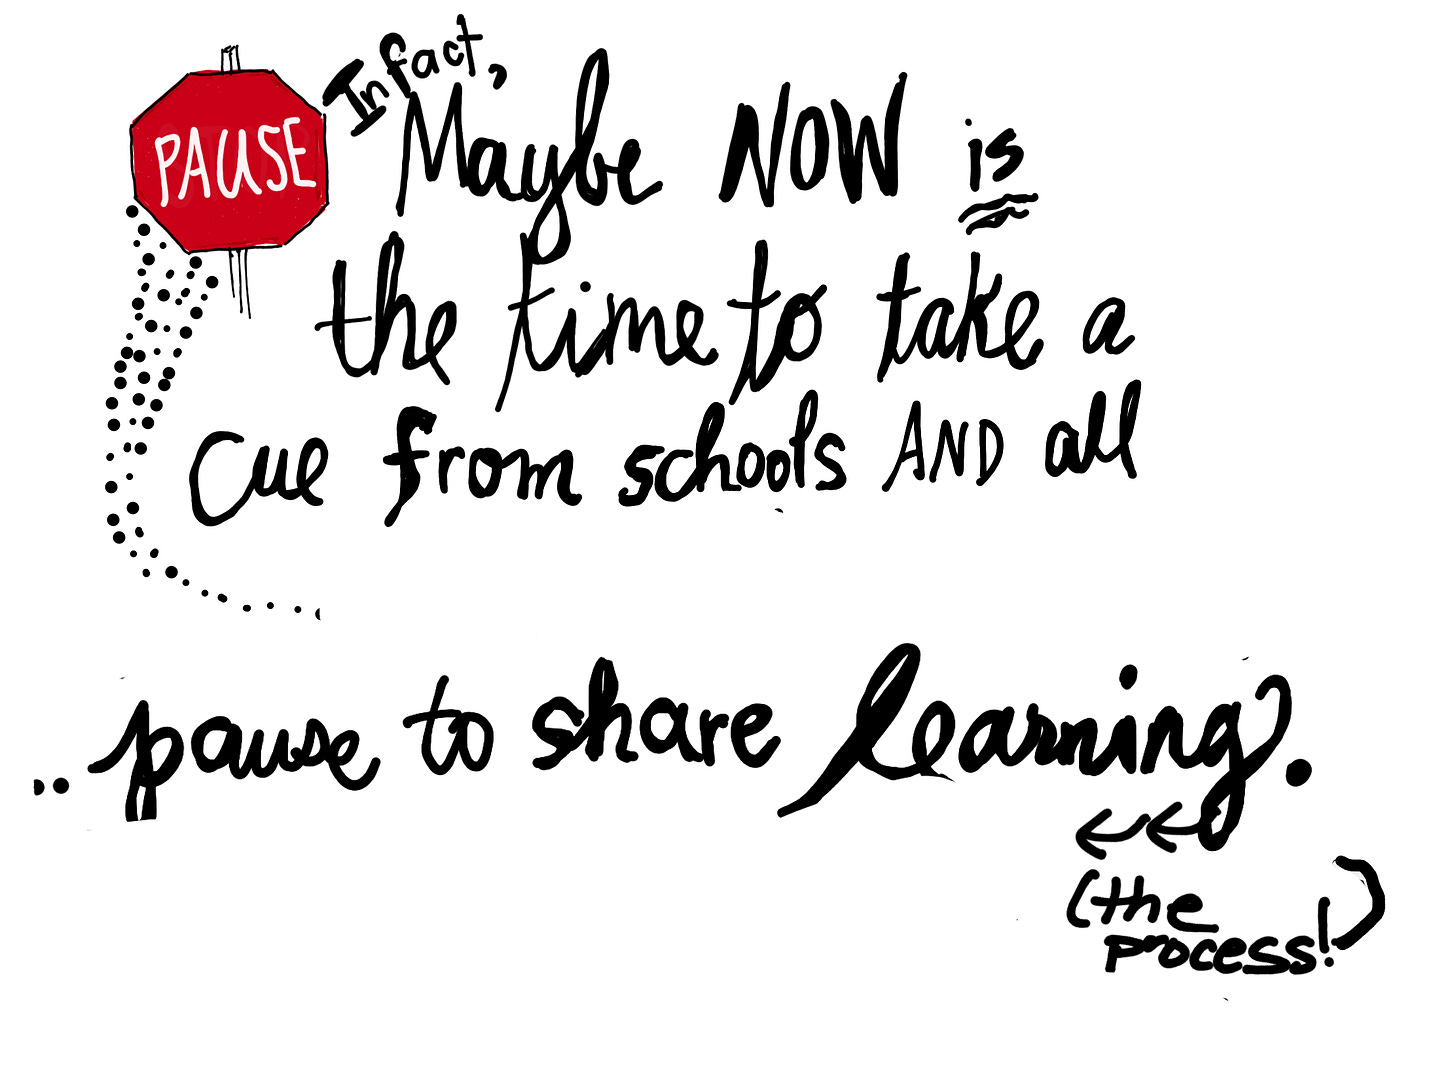 PAUSE
In fact,
Maybe NOW is
the time to take a
cue from schools AND all
pause to share learning.
(the
process!)